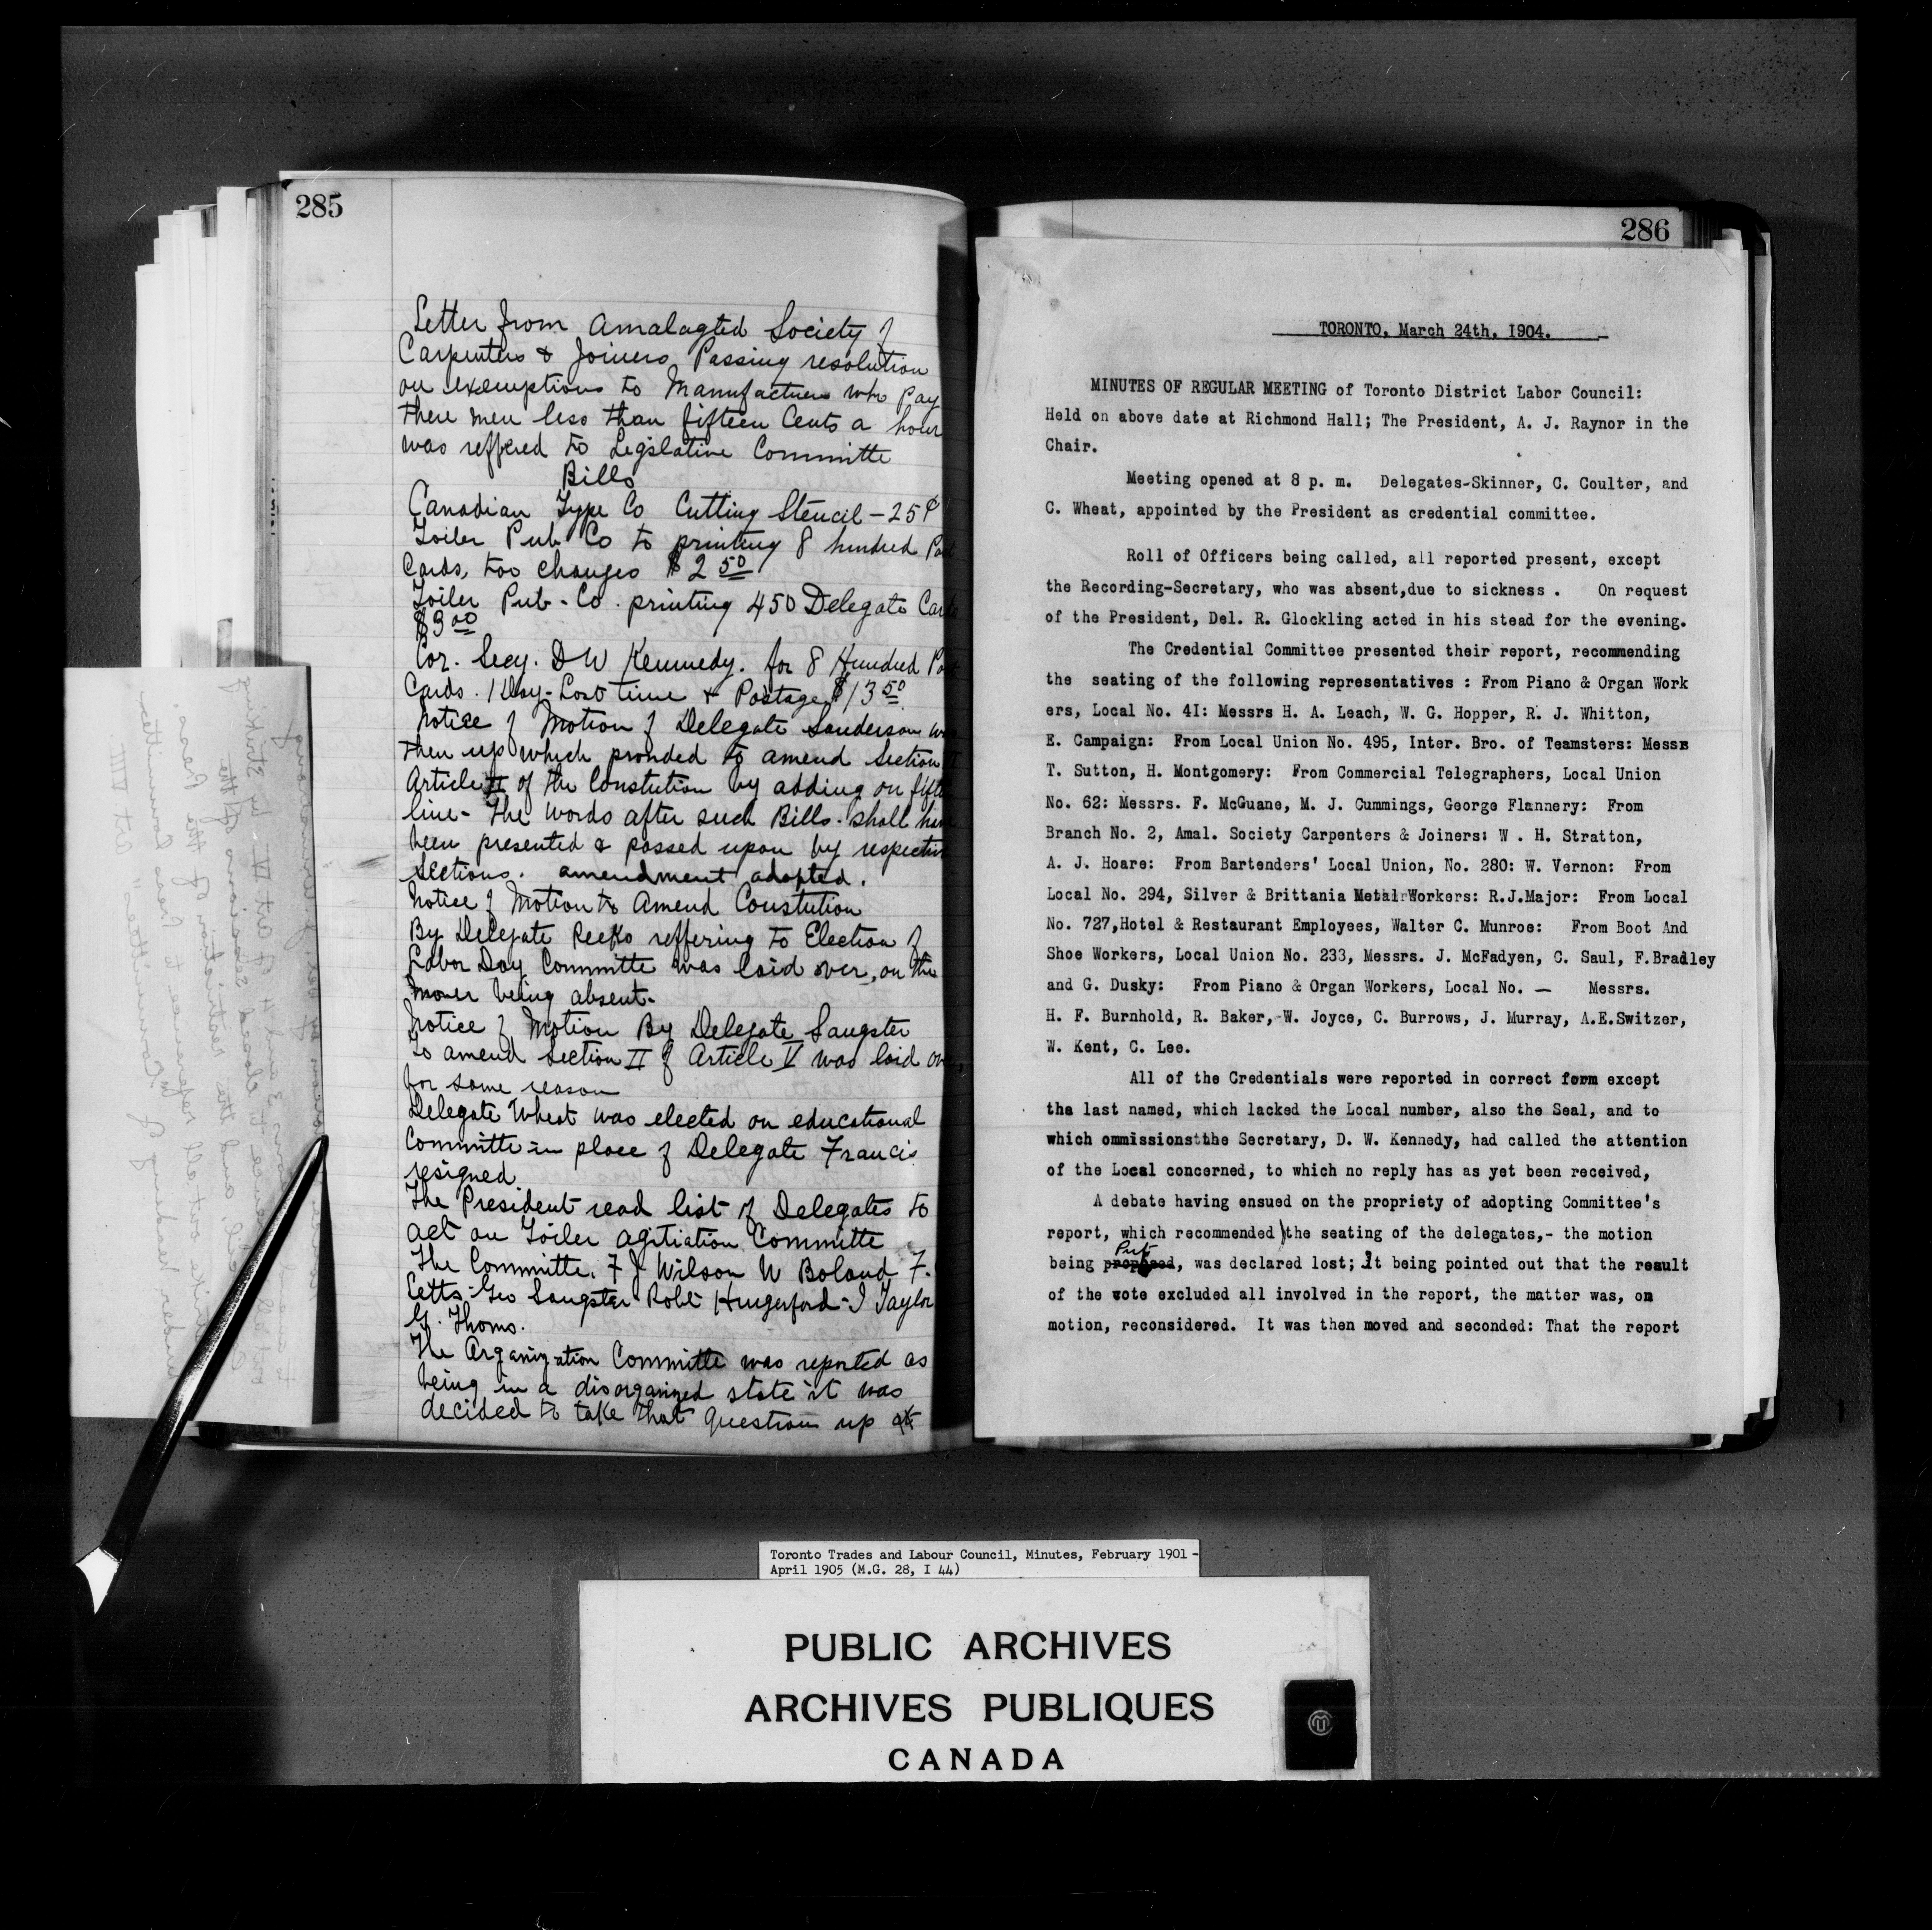 285
Letter from Amalagted Society of
Carpenters & Joiners Passing resolution
on exemptions to Manufactures who Pay
there men less than fifteen Cents a hour
was reffered to Legislative Committe
Bills
Canadian Type Co Cutting Stencil - 25¢
Toiler Pub Co to printing 8 hundred
Cards, too changes $2 50
Toiler Pub - Co. printing 450 Delegate
$3 00
Cor. Secy. D W Kennedy. for 8 Hundred
Cards. 1 Day - Lost time & Postage $13 50
Notice of Motion of Delegate Sanderson
then up which provided to amend Section
Article II of the Constution by adding on
line - The words after such Bills - shall
been presented & passed upon by
sections. amendment adopted.
Notice of Motion to Amend Constution
By Delegate reffering to Election of
Labor Day Committe was laid over, on the
mover being absent.
Notice of Motion By Delegate Sangster
To amend Section II of Article V was laid
for same reason
Delegate Wheat was elected on educational
Committe in place of Delegate Francis
resigned
The President read list of Delegates to
act on Toiler agitiation Committe
The Committe. F J Wilson W Boland F.
Cetts - Geo Sangster Robt Hungerford - J Taylor
G. Thoms.
The Organization Committe was reported as
being in a disorganized state it was
decided to take that question up at
286
TORONTO, March 24th, I904.
MINUTES OF REGULAR MEETING of Toronto District Labor Council:
Held on above date at Richmond Hall; The President, A. J. Raynor in the
Chair.
Meeting opened at 8 p. m. Delegates-Skinner, C. Coulter, and
C. Wheat, appointed by the President as credential committee.
Roll of Officers being called, all reported present, except
the Recording-Secretary, who was absent,due to sickness . On request
of the President, Del. R. Glockling acted in his stead for the evening.
The Credential Committee presented their report, recommending
the seating of the following representatives : From Piano & Organ Work
ers, Local No. 4I: Messrs H. A. Leach, W. G. Hopper, R. J. Whitton,
E. Campaign: From Local Union No. 495, Inter. Bro. of Teamsters: Messrs
T. Sutton, H. Montgomery: From Commercial Telegraphers, Local Union
No. 62: Messrs. F. McGuane, M. J. Cummings, George Flannery: From
Branch No. 2, Amal. Society Carpenters & Joiners: W . H. Stratton,
A. J. Hoare: From Bartenders' Local Union, No. 280: W. Vernon: From
Local No. 294, Silver & Brittania Metal Workers: R.J.Major: From Local
No. 727,Hotel & Restaurant Employees, Walter C. Munroe: From Boot And
Shoe Workers, Local Union No. 233, Messrs. J. McFadyen, C. Saul, F.Bradley
and G. Dusky: From Piano & Organ Workers, Local No. — Messrs.
H. F. Burnhold, R. Baker, W. Joyce, C. Burrows, J. Murray, A.E.Switzer,
W. Kent, C. Lee.
All of the Credentials were reported in correct form except
the last named, which lacked the Local number, also the Seal, and to
which ommissions the Secretary, D. W. Kennedy, had called the attention
of the Local concerned, to which no reply has as yet been received,
A debate having ensued on the propriety of adopting Committee's
report, which recommended the seating of the delegates,- the motion
Put
being proposed, was declared lost; It being pointed out that the result
of the vote excluded all involved in the report, the matter was, on
motion, reconsidered. It was then moved and seconded: That the report
Toronto Trades and Labour Council, Minutes, February 1901 -
April 1905 (M.G. 28, I 44)
PUBLIC ARCHIVES
ARCHIVES PUBLIQUES
CANADA